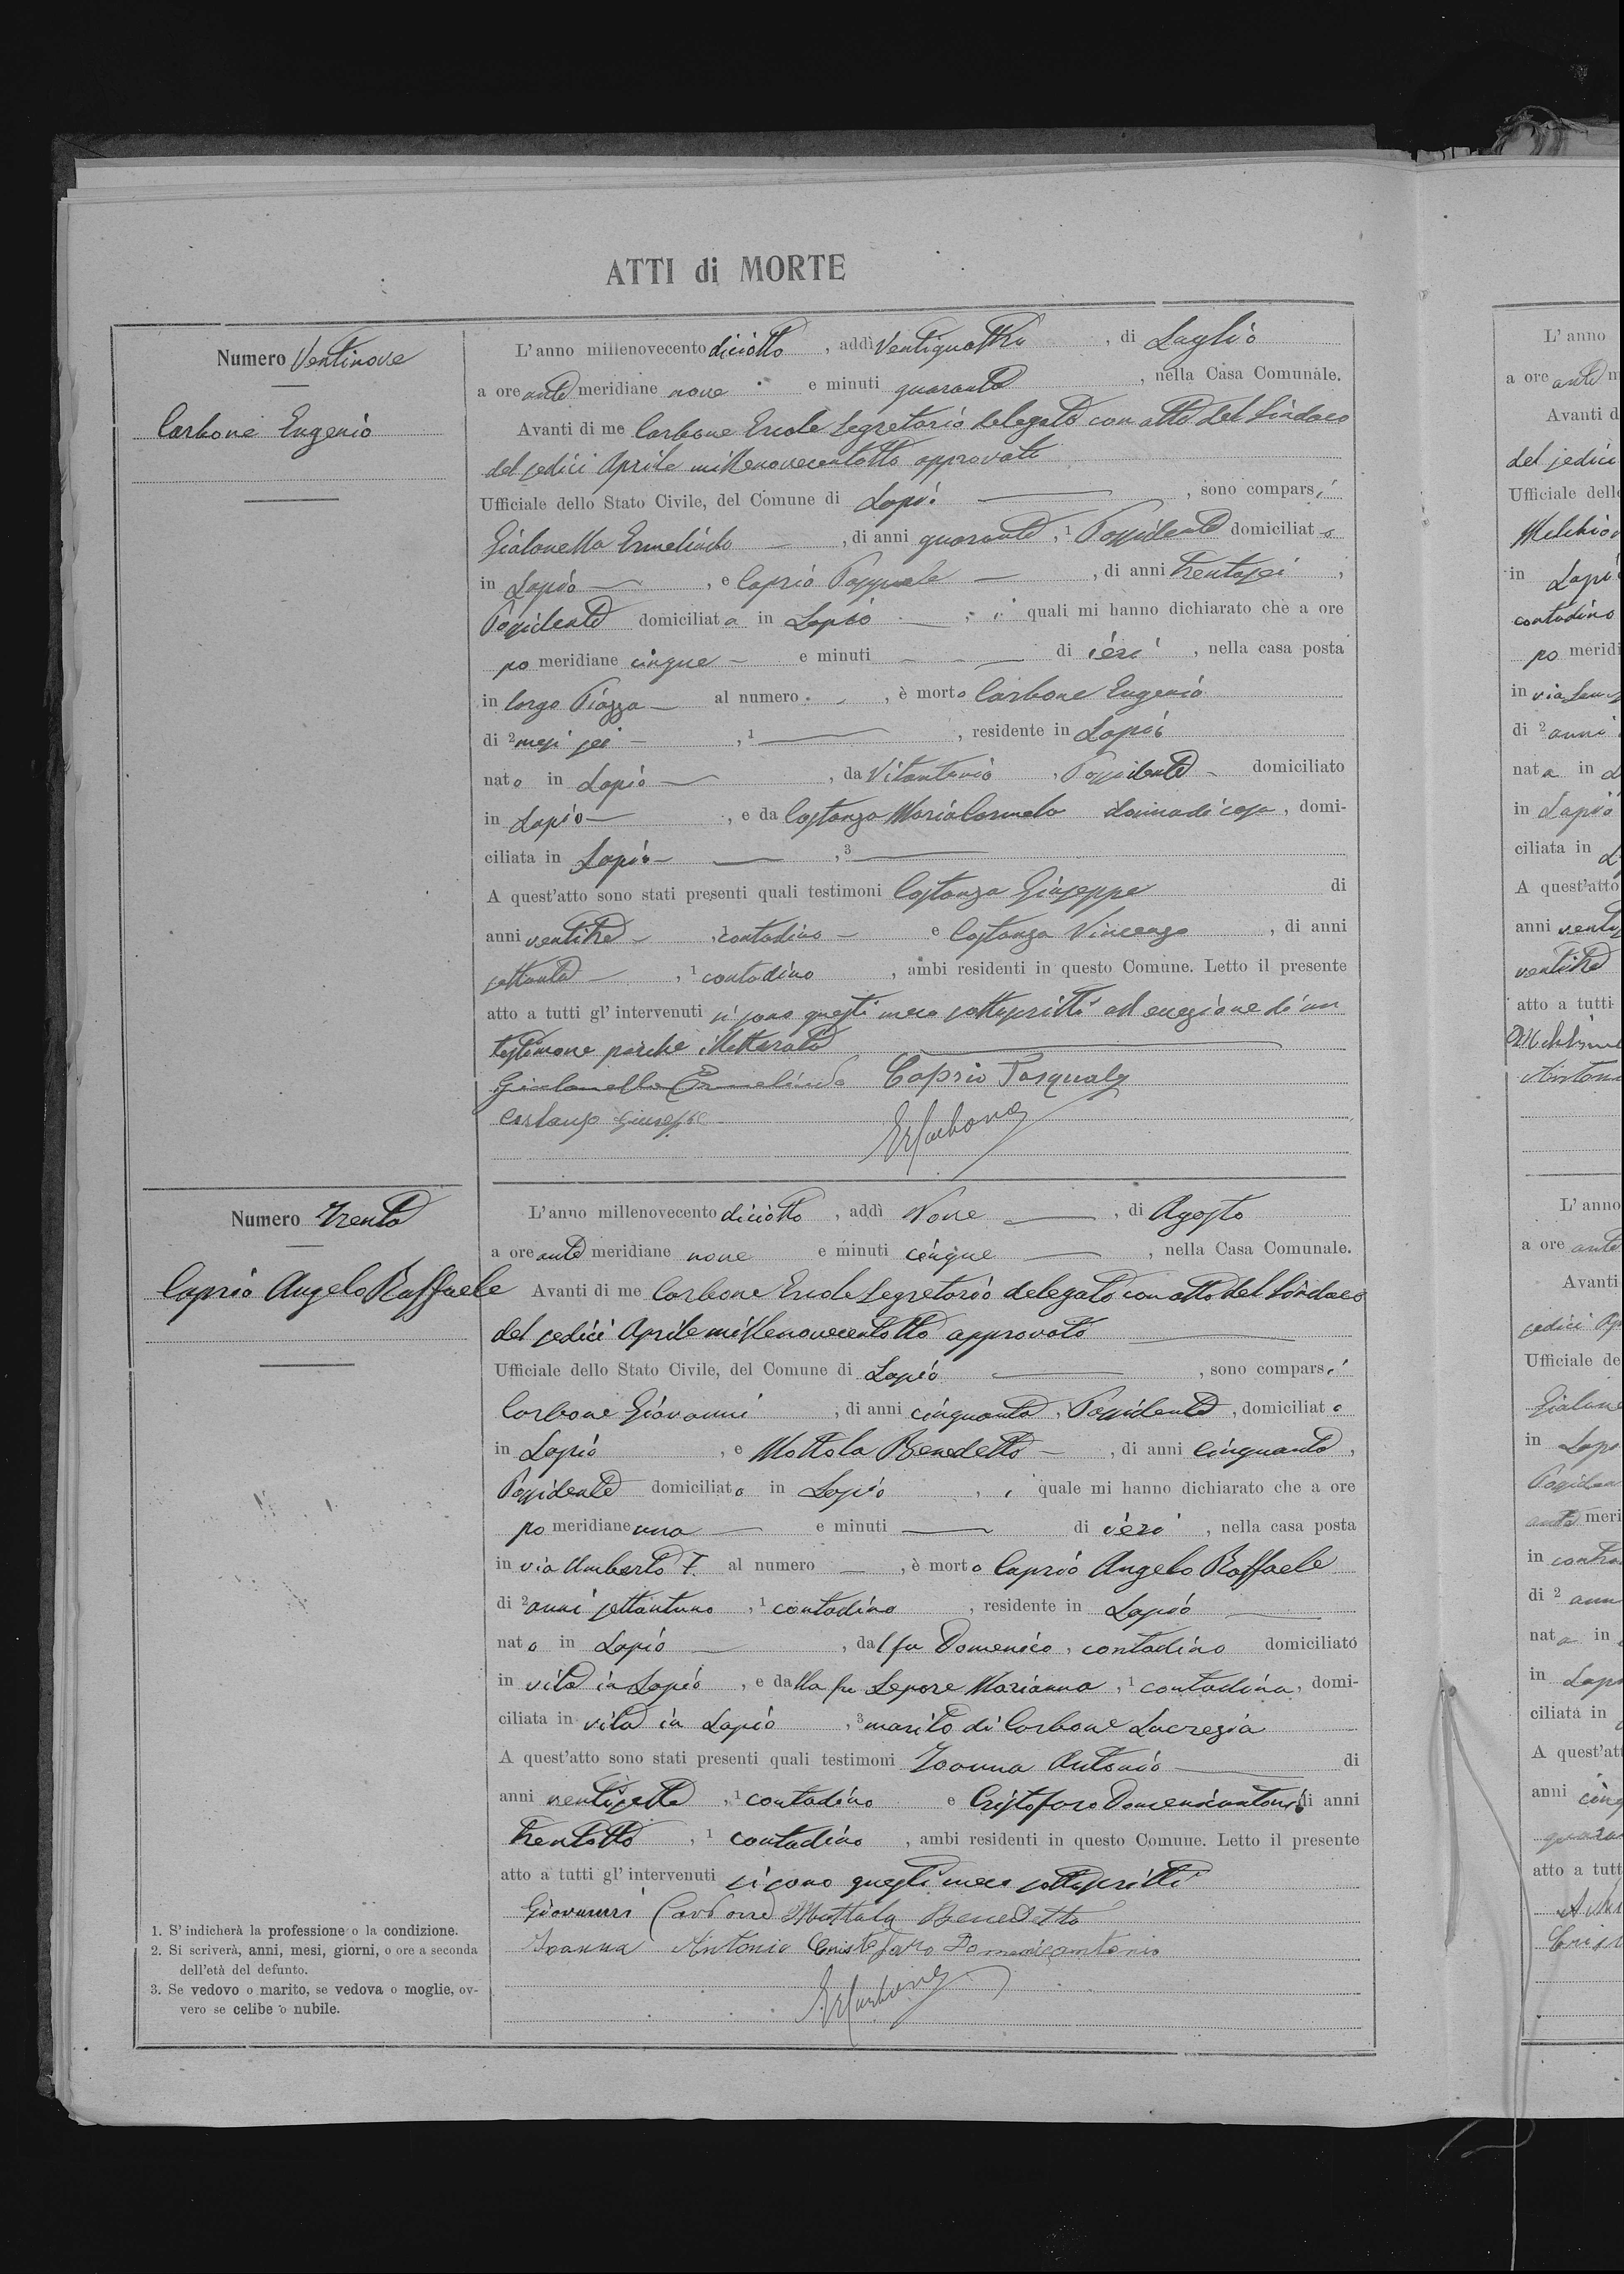 ATTI di MORTE
Numero Ventinove
Carbone Eugenio
L'anno millenovecento diciotto, addì Ventiquattro, di Luglio
a ore ante meridiane nove e minuti quaranta, nella Casa Comunale.
Avanti di me Carbone Ercole Segretario delegato con atto del Sindaco
del sedici Aprile millenovecentotto approvato
Ufficiale dello Stato Civile, del Comune di Lapio, sono comparsi
Gialonella Ermelindo, di anni quaranta, 1 Possidente domiciliato
in Lapio, e Caprio Pasquale, di anni trentasei,
Possidente domiciliato in Lapio, i quali mi hanno dichiarato che a ore
po meridiane cinque e minuti di ieri, nella casa posta
in largo Piazza al numero, è morto Carbone Eugenio
di 2 mesi sei, 1, residente in Lapio
nato in Lapio, da Vitantonio, Possidente domiciliato
in Lapio, e da Costanza Maria Carmela donna di casa, domi-
ciliata in Lapio, 3
A quest'atto sono stati presenti quali testimoni Costanza Giuseppe di
anni ventitre, contadino e Costanza Vincenzo, di anni
settanta, 1 contadino, ambi residenti in questo Comune. Letto il presente
atto a tutti gl'intervenuti si sono questi meco sottoscritti ad eccezione di un
testimone perche illetterato
Gialonella Ermelindo Caprio Pasquale
Costanza Giuseppe
ErCarbone
Numero Trenta
Caprio Angelo Raffaele
L'anno millenovecento diciotto, addì Nove, di Agosto
a ore ante meridiane nove e minuti cinque, nella Casa Comunale.
Avanti di me Carbone Ercole Segretario delegato con atto del Sindaco
del sedici Aprile millenovecentotto approvato
Ufficiale dello Stato Civile, del Comune di Lapio, sono comparsi
Carbone Giovanni, di anni cinquanta, Possidente, domiciliato
in Lapio, e Mottola Benedetto, di anni cinquanta,
Possidente domiciliato in Lapio, i quale mi hanno dichiarato che a ore
po meridiane una e minuti di ieri, nella casa posta
in via Umberto I. al numero, è morto Caprio Angelo Raffaele
di 2 anni settantuno, 1 contadino, residente in Lapio
nato in Lapio, dal fu Domenico, contadino domiciliato
in vita in Lapio, e dalla fu Lepore Marianna, 1 contadina, domi-
ciliata in vita in Lapio, 3 marito di Carbone Lucrezia
A quest'atto sono stati presenti quali testimoni Ioanna Antonio di
anni ventisette, 1 contadino e Cristofaro Domenicantonio di anni
trentotto, 1 contadino, ambi residenti in questo Comune. Letto il presente
atto a tutti gl'intervenuti si sono questi meco sottoscritti
Giovanni Carbone Mottola Benedetto
Ioanna Antonio Cristofaro Domenicantonio
ErCarbone
1. S'indicherà la professione o la condizione.
2. Si scriverà, anni, mesi, giorni, o ore a seconda
dell'età del defunto.
3. Se vedovo o marito, se vedova o moglie, ov-
vero se celibe o nubile.
L'anno
a ore ante m
Avanti d
del sedici
Ufficiale dell
Melchior
in Lapi
contadino
po meridi
in via
di 2 anni
nata in
in Lapio
ciliata in
A quest'atto
anni
ventitre
atto a tutti
Anton
L'anno
a ore ante
Avanti
sedici Ap
Ufficiale de
Gialone
in Lapi
Possiden
meri
in contra
di 2 ann
nata in
in Lapi
ciliata in
A quest'att
anni cinq
quara
atto a tutt
Crist